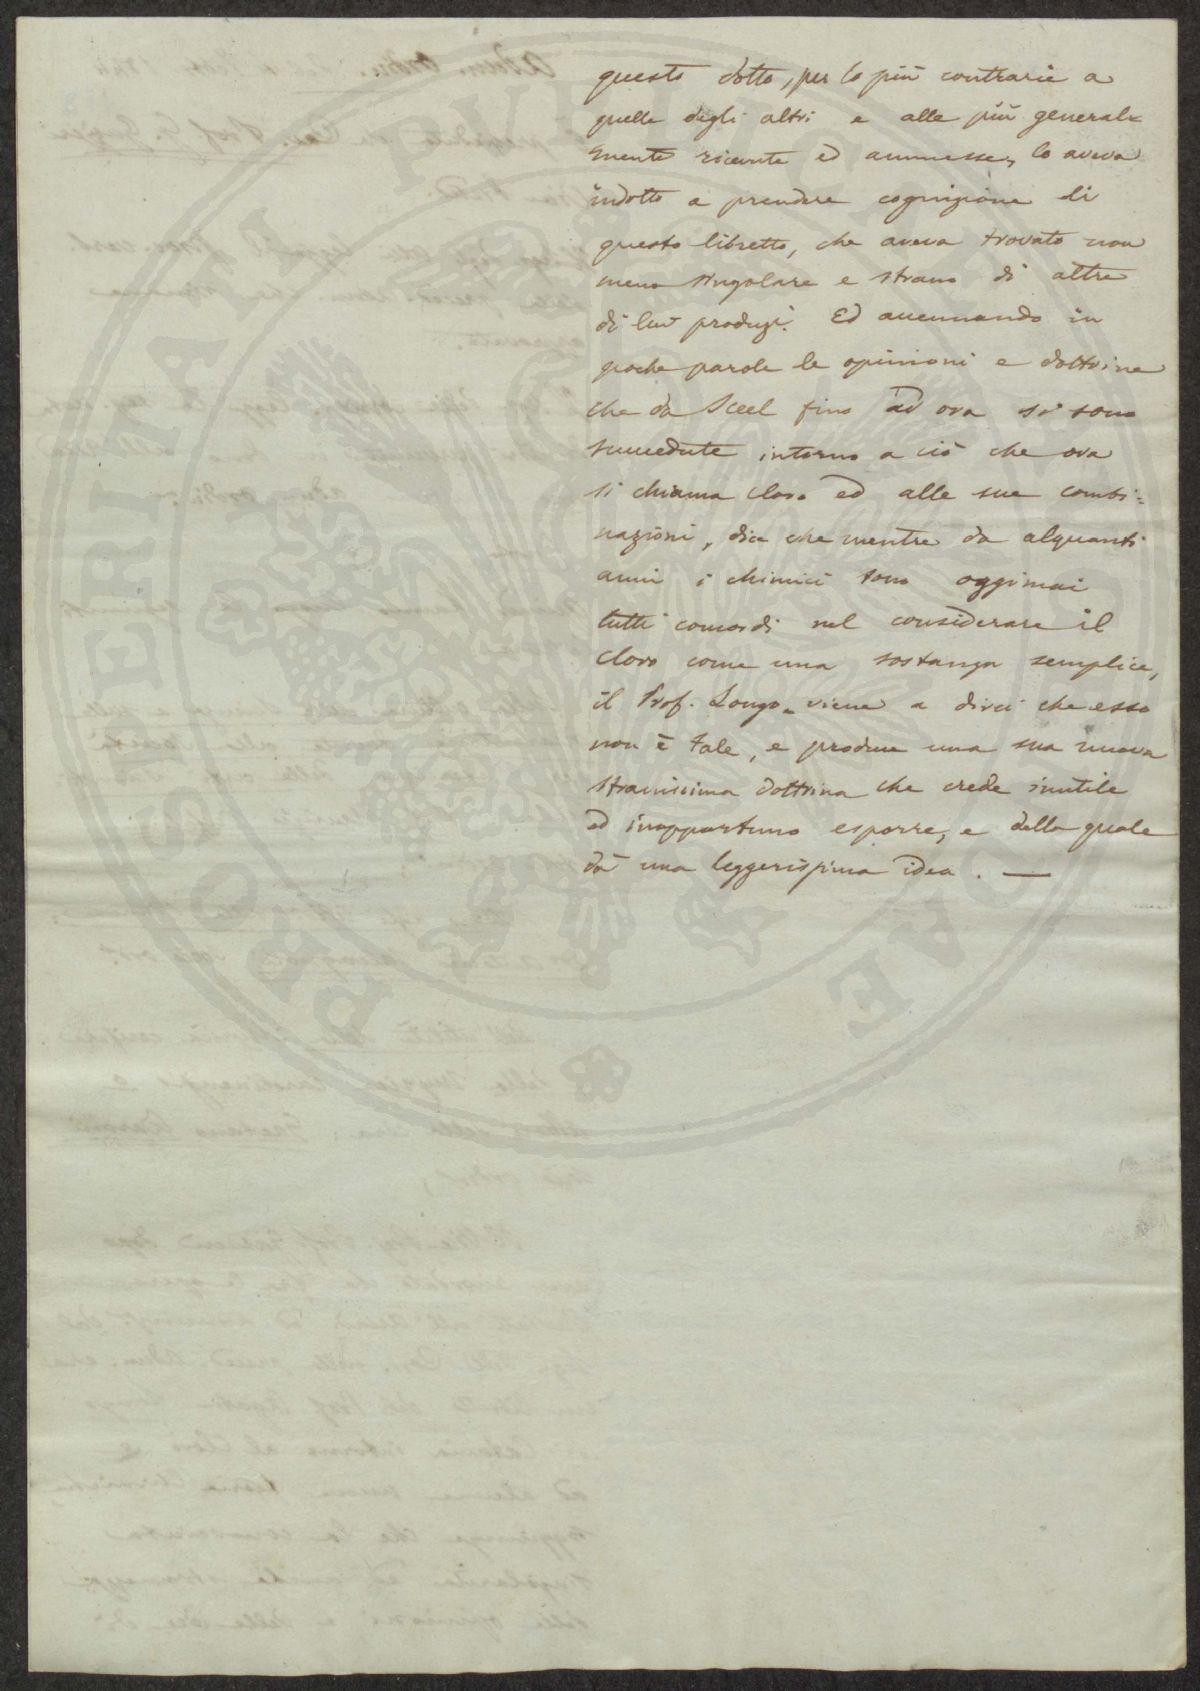 questo dotto, per lo più contrarie a
quelle degli altri e alle più general=
mente ricevute ed ammesse, lo aveva
indotto a prendere cognizione di
questo libretto, che aveva trovato non
meno singolare e strano di altre
di lui produzi. Ed accennando in
poche parole le opinioni e dottrine
che da Sceel fino ad ora si sono
succedute intorno a ciò che ora
si chiama cloro ed alle sue combi=
nazioni, dice che mentre da alquanti
anni i chimici sono oggimai
tutti concordi nel considerare il
cloro come una sostanza semplice,
il Prof. Longo viene a dirci che esso
non è tale, e produce una sua nuova
stranissima dottrina che crede inutile
ed inopportuno esporre, e della quale
dà una leggerissima idea. —